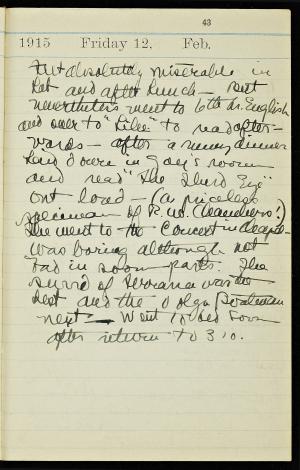 43
1915 Friday 12, Feb.
Felt absolutely miserable in
Lat and after lunch — But
nevertheless went to 6th hr. English
and over to "Libe" to read after-
wards — after a runny dinner
laid down in Gay's room
and read "The Third Eye"
out loud — (a priceless
specimen of R. W. Chambers!)
She went to the Concert in
was boring although not
bad in some parts. The
of was the
best and the
next — Went to bed soon
after return to 310.